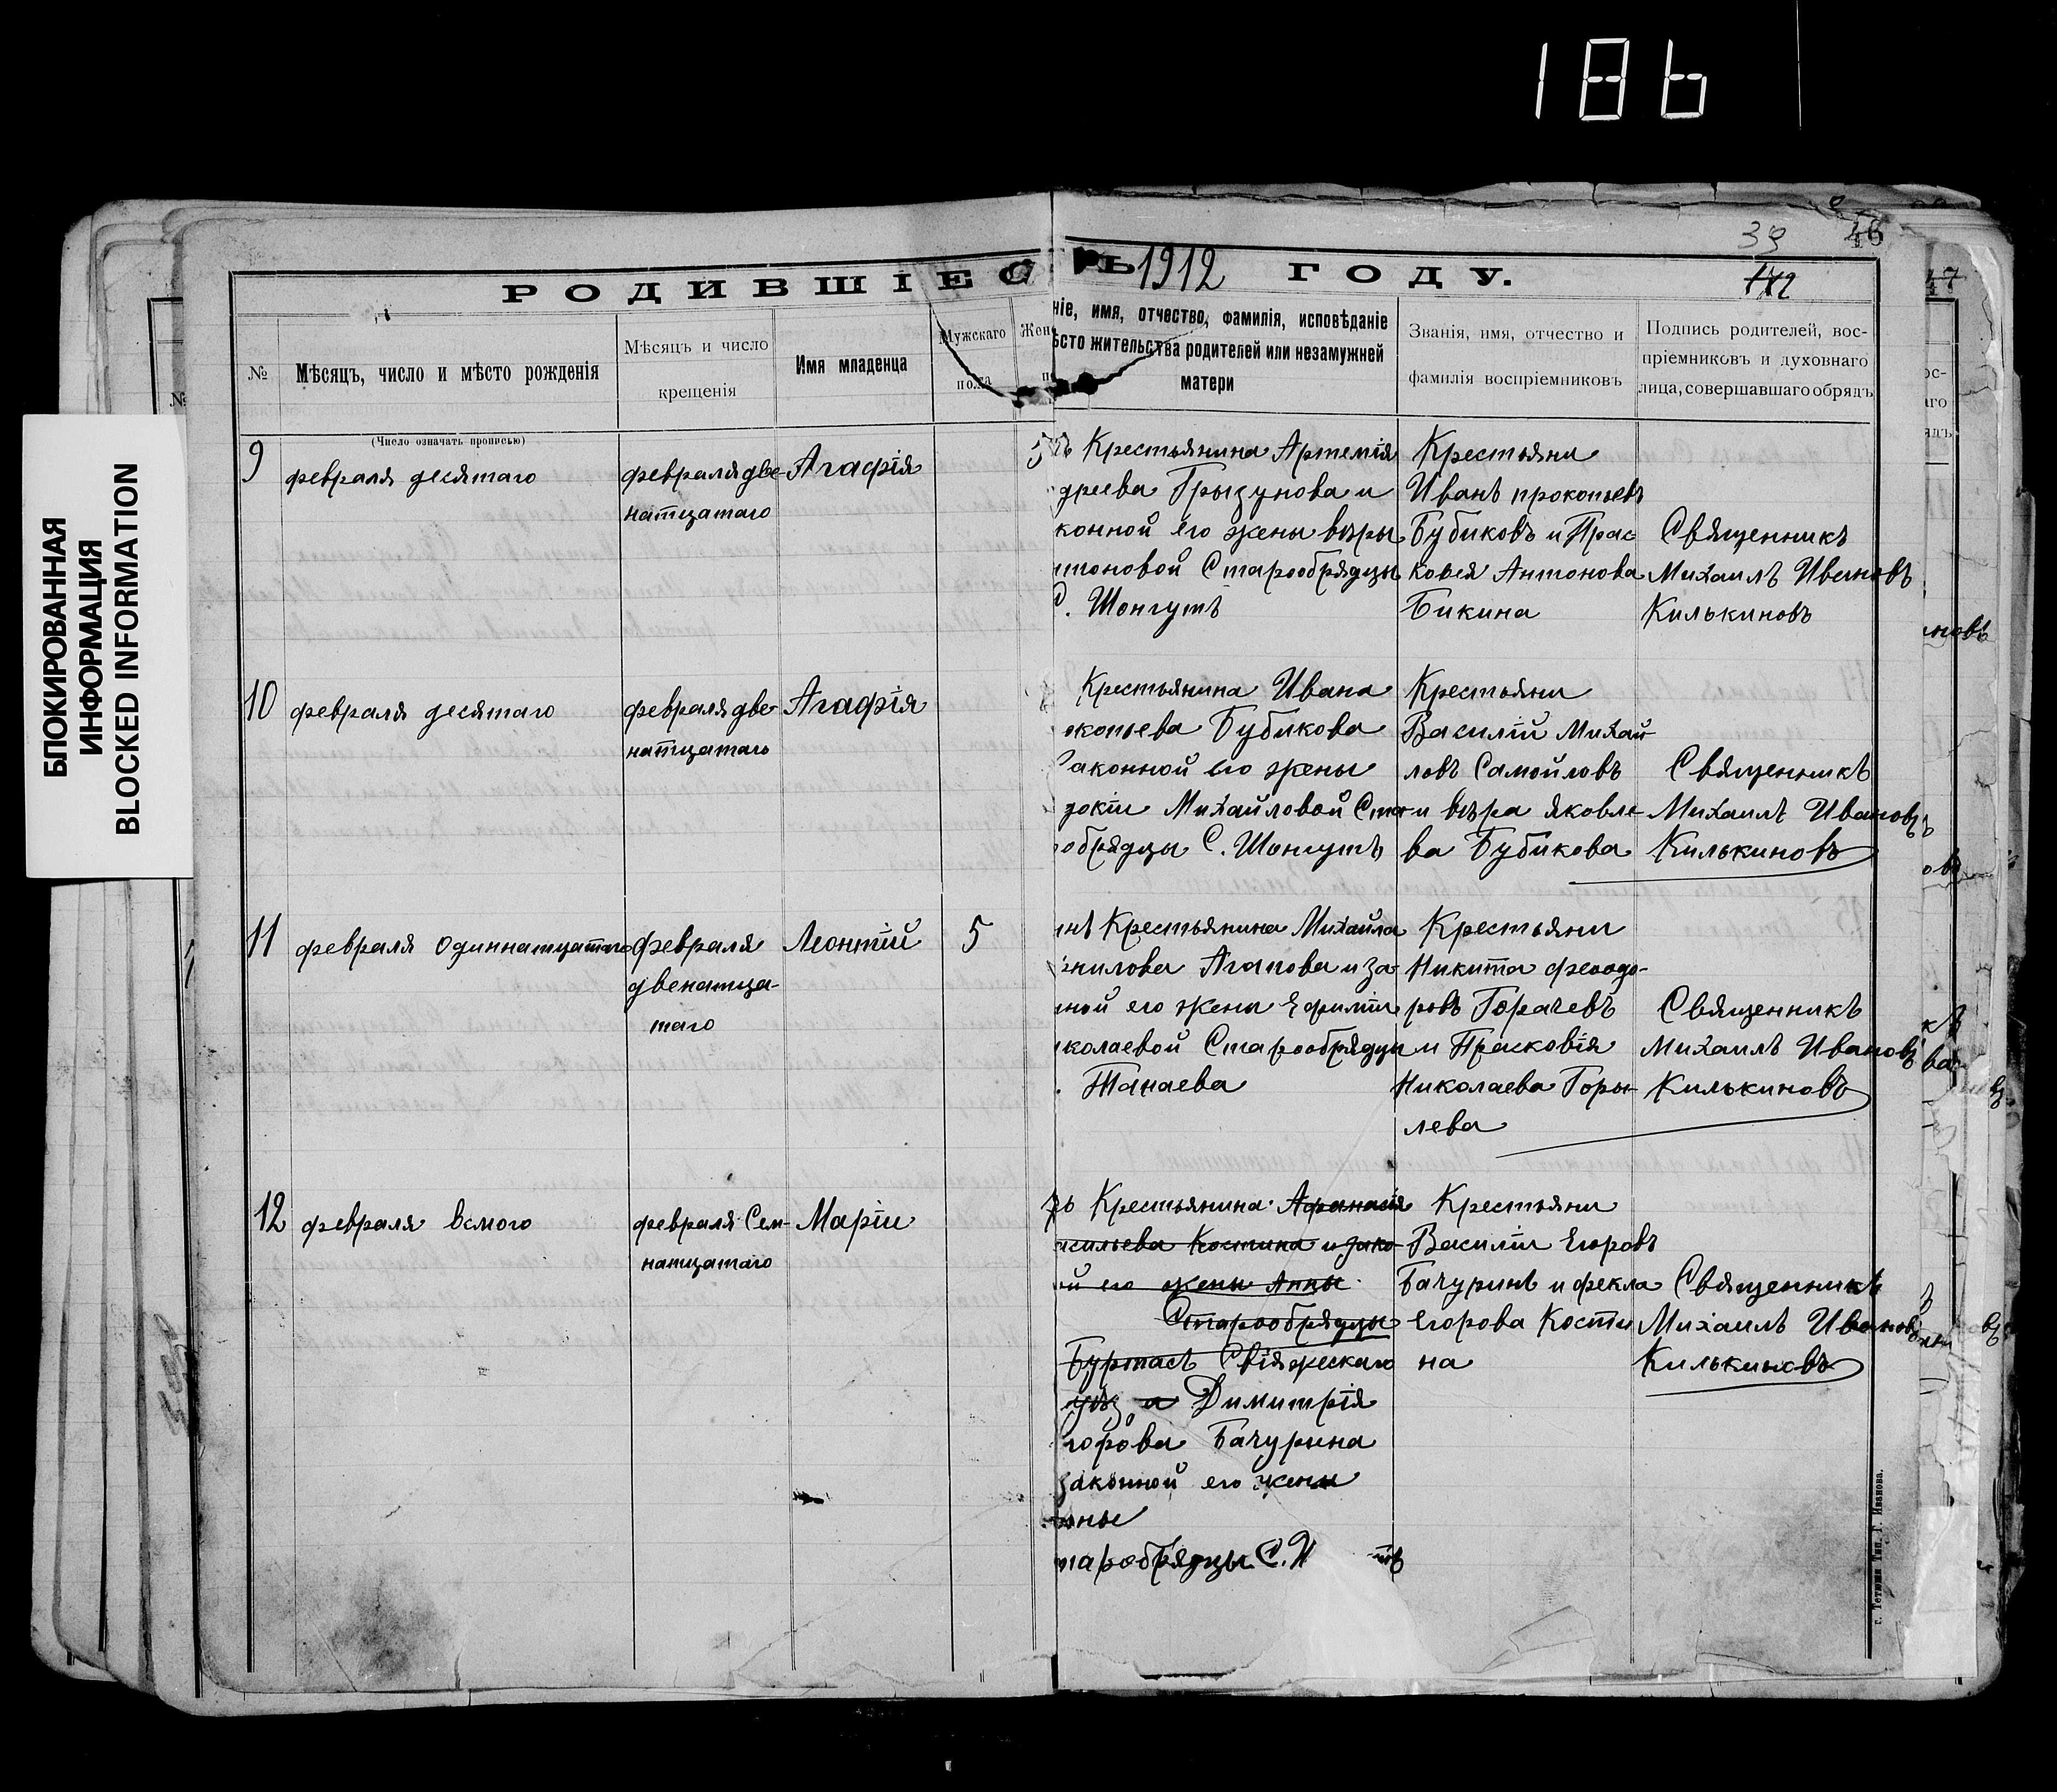 186
39
46
РОДИВШІЕС Ъ 1912 ГОДУ.
172
47
№
Мѣсяцъ, число и мѣсто рожденія
(Число означать прописью)
Мѣсяцъ и число
крещенія
Имя младенца
Мужскаго
пола
Жен
ніе, имя, отчество, фамилія, исповѣданіе
ѣсто жительства родителей или незамужней
матери
Званія, имя, отчество и
фамилія воспріемниковъ
Подпись родителей, вос-
пріемниковъ и духовнаго
лица, совершавшаго обрядъ
БЛОКИРОВАННАЯ
ИНФОРМАЦИЯ
BLOCKED INFORMATION
9
февраля десятаго
февраля две-
натцатаго
Агафія
5
Крестьянина Артемія
дреева Грызунова и
конной его жены вѣры
нтоновой Старообрядцы
С. Шонгутъ
Крестьяни
Иванъ прокопьевъ
Бубиковъ и Прас
ковея Антонова
Бикина
Священникъ
Михаилъ Ивановъ
Килькиновъ
10
февраля десятаго
февраля две-
натцатаго
Агафія
Крестьянина Ивана
окопьева Бубикова
Законной его жены
докіи Михайловой Ста-
обрядцы С. Шонгутъ
Крестьяни
Василій Михай-
ловъ Самойловъ
и вѣра яковле-
ва Бубикова
Священникъ
Михаилъ Ивановъ
Килькиновъ
11
февраля Одиннатцатаго
февраля
двенатца-
таго
Леонтій
5
Крестьянина Михаила
нилова Агапова и за-
ной его жены Ефиміи
иколаевой Старообрядцы
Танаева
Крестьяни
Никита феодо-
ровъ Горачевъ
и Прасковія
Николаева Горы-
лева
Священникъ
Михаилъ Ивановъ
Килькиновъ
12
февраля всмого
февраля Сем-
натцатаго
Маріи
Крестьянина Афанасія
асильева Костина и зако-
й его жены Анны
Старообрядцы
Буртасъ Свіяжескаго
уѣз и Димитрія
горова Бачурина
законной его жены
нны
тарообрядцы С.
Крестьяни
Василіи Егоровъ
Бачуринъ и фекла
Егорова Кости
на
Священникъ
Михаилъ Ивановъ
Килькиновъ
г. Тетюши Тип. Г. Иванова.